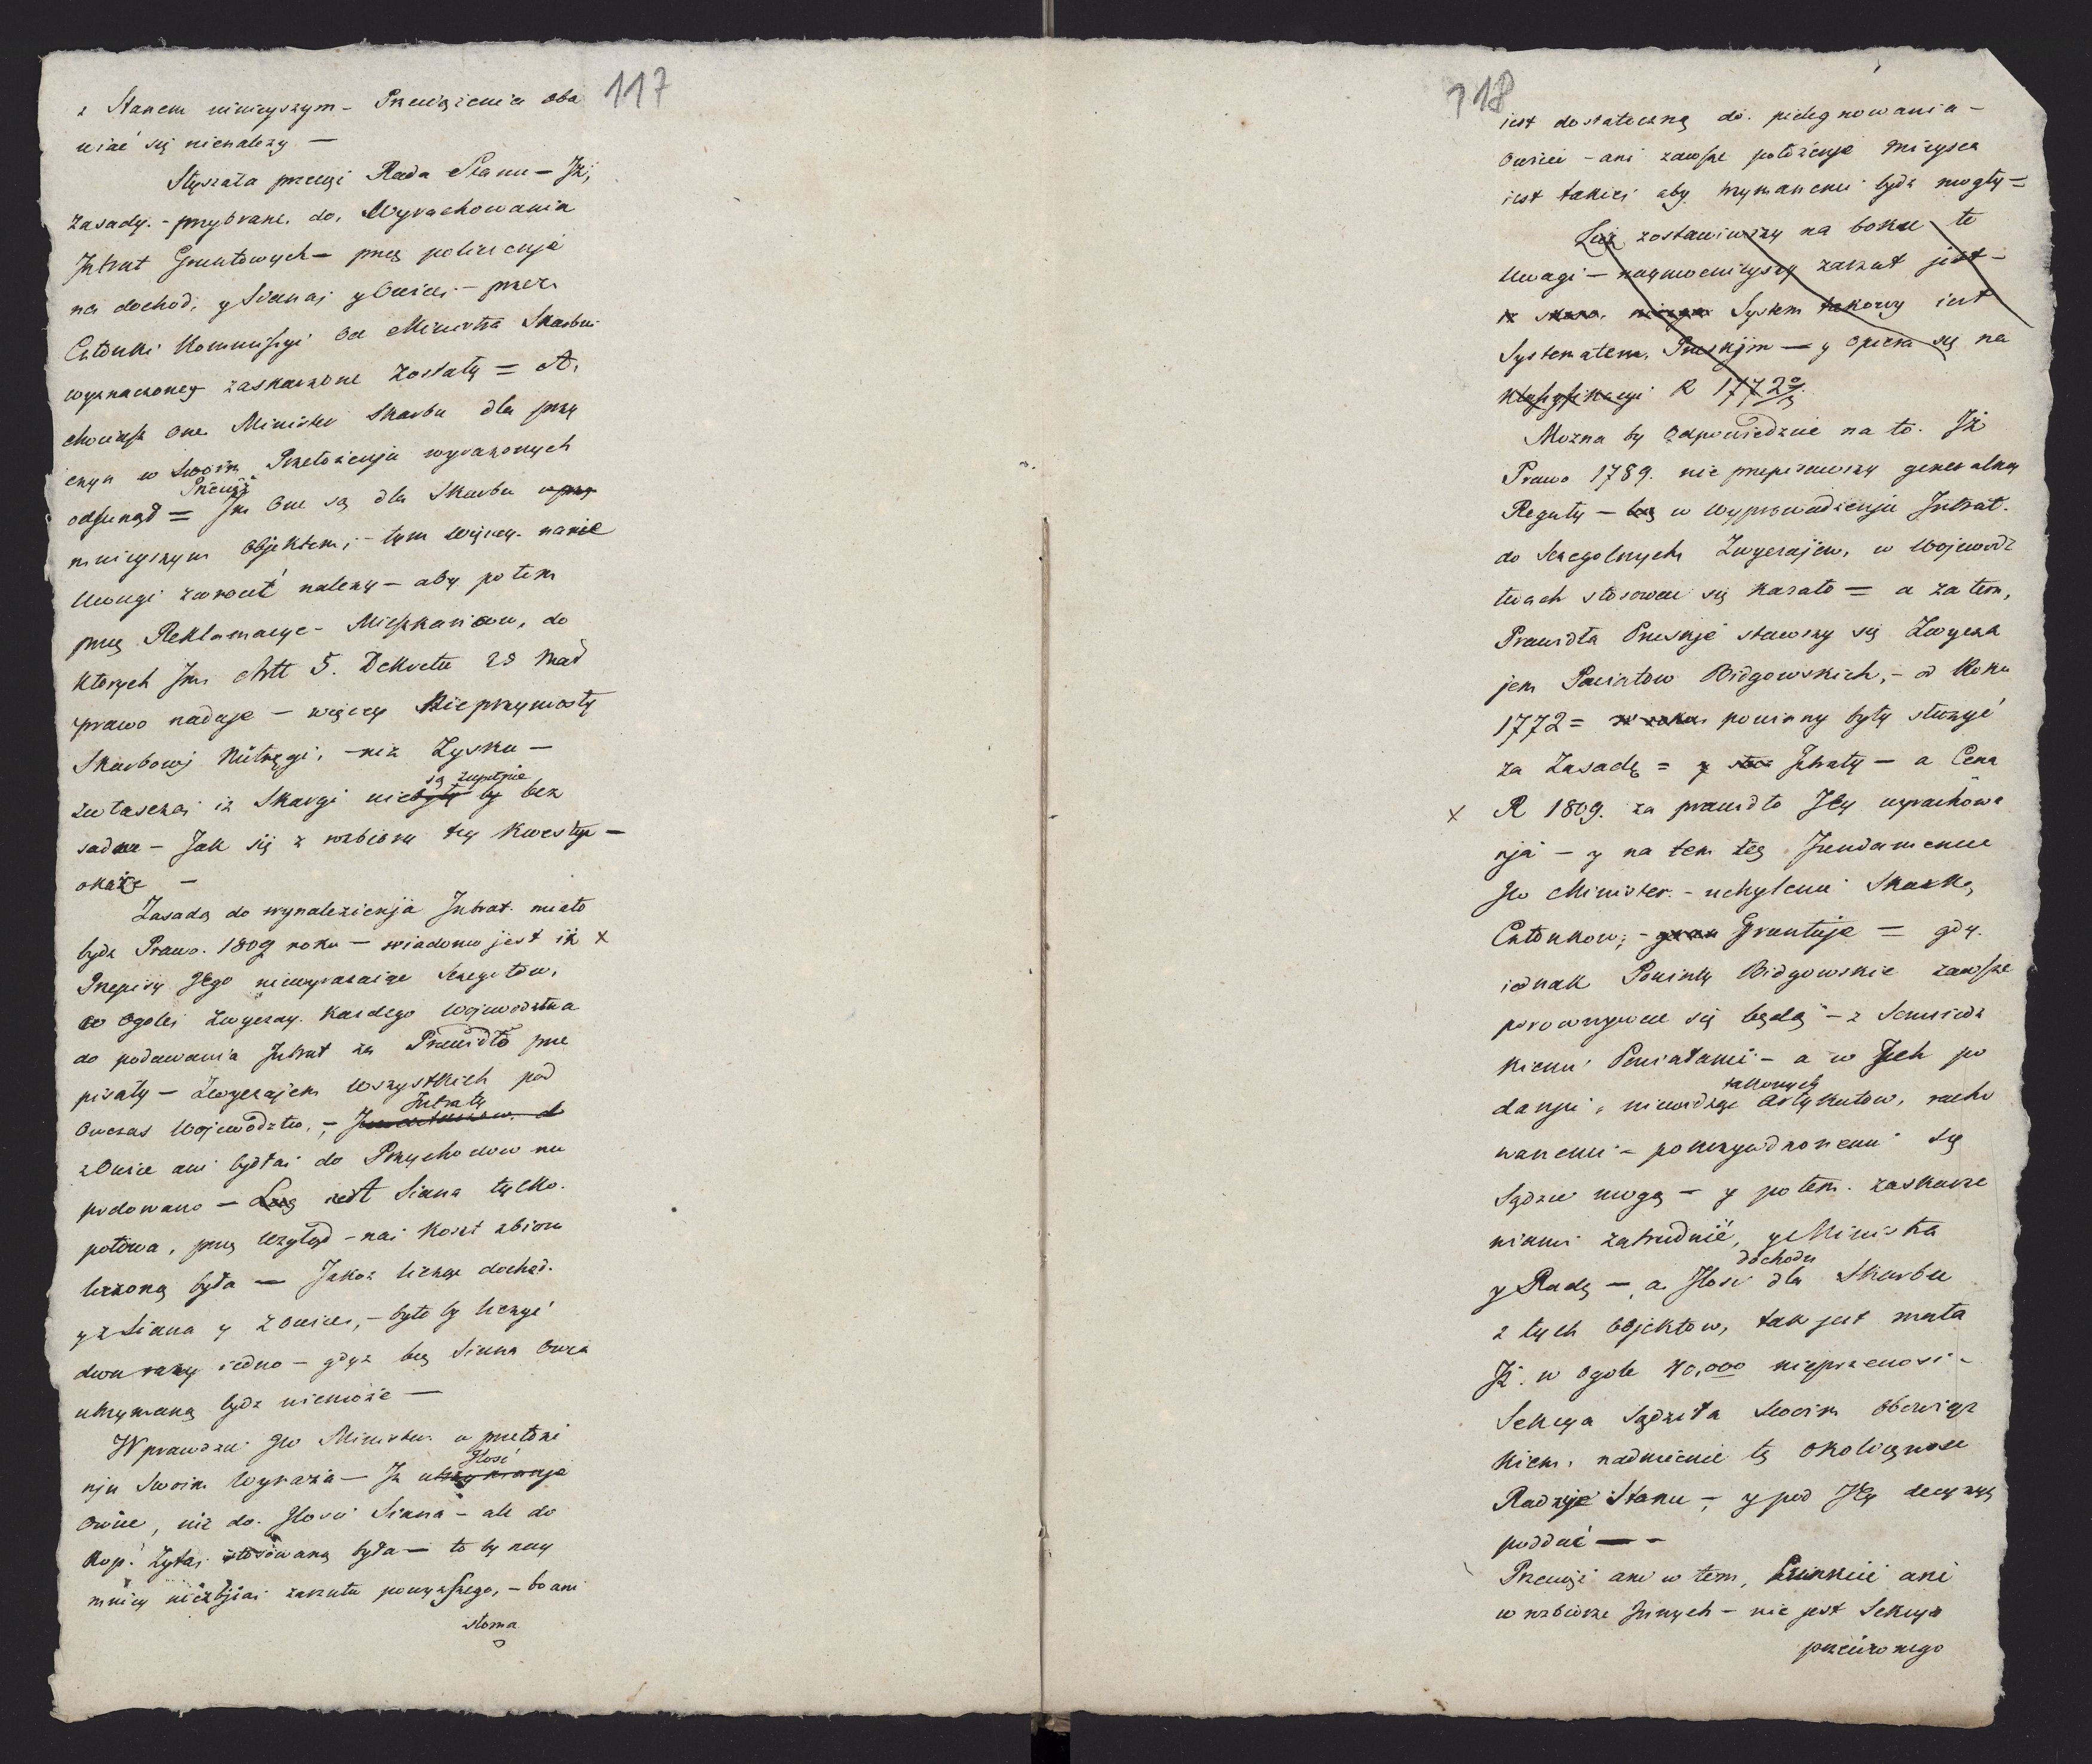 117
z Stanem ninieyszym - Przeciążenia oba
wiać się nienależy —
Słyszała przecież Rada Stanu — Iż,
zasady. - przybrane. do. Wyrachowania
Intrat Gruntowych — przez policzenje
na dochod, y Siana, y Owiec, — przez
Członki Kommissyi Od Ministra Skarbu
wyznaczoney zaskarzone zostały = A,
chociasz One Minister Skarbu dla przy
czyn w Swoim Przełożenju wyrazonych
Przeciąż
odsunął = Im One są dla Skarbu
mnieyszym Objektem, - tym więcey. nanie
Uwagi zwrocić nalezy — aby potem
przez Reklamacye - Mieszkańcow, do
ktorych Im Artt 5. Dekretu 28 Mad
prawo nadaje — więcey Nieprzyniosły
Skarbowj Mitręgi, - niż Zysku —
są zupełnie
zwłaszcza, iż Skargi nie były by bez
sadne — Jak się z rozbioru tey Kwestyi —
okaże —
Zasadą do wynalezienja Intrat. miało
bydź Prawo. 1809 roku — wiadomo jest iż x
Przepisy Jego niewyrazaiąc Szczegułow,
w Ogolei Zwyczay. Kazdego Wojewodztwa
do podawania Intrat za Prawidło prze
pisały — Zwyczajem Wszystkich pod
Intraty
Owczas Wojewodztw, -
z Owiec ani bydła, do Przychodow nie
podowano — Lecz iedt Siana tylko.
połowa, przez Wzgłąd - na, Koszt zbioru
liczoną była — Jakoż licząc dochod.
y z Siana y z Owiec, - było by liczyć
dwa razy iedno — gdyz bez Siana Owca
utrzymaną bydz niemoże —
Wprawdzie JW Minister w przełoże
Ilość
nju Swoim Wyraza — Iż utrzymanja
Owiec, nie do. Ilości Siana - ale do
Kop. Zyta, stosowaną była — to by nay
mniey niezbjia, zarzutu powyższego, - bo ani
słoma
118
iest dostateczną do. pielęgnowania —
Owiec - ani zawsze położenje mieysca
iest takiei aby trzymanemi bydź mogły =
Lecz zostawiwszy na boku te
Uwagi — naymocnieyszy zarzut jest —
iż System takowy iest
Systematem. Pruskjm — y Opiera się na
Klassyfikacyi R 1772º/3
Mozna by Odpowiedzieć na to. Iż
Prawo 1789. nie przepisawszy generalney
Reguły — lecz w wyprowadzenju Intrat.
do Szczegolnych Zwyczajow, w Wojewodz
twach stosować się kazało = a zatem,
Prawidła Pruskje stawszy się Zwycza
jem Powiatow Bidgowskich, - od Roku
1772 = powinny były słuzyć
za Zasadę = y Intraty — a Cena
x R 1809. za prawidło Jey wyrachowa
nja — y na tem też Fundamencie
JW Minister. - uchylenie Skarkę
Członkow, - Gruntuje = gdy.
iednak Powiaty Bidgowskie zawsze
porownywać się będą — z Sąsiedz
kiemi Powiatami — a w Jech po
takowych
danju, niewidząc Artykułow, racho
wanemi — pokrzywdzonemi się
Sądzić mogą — y potem. zaskarze
niami zatrudnić, y Ministra
dochodu
y Radę —, a Ilość dla Skarbu
z tych Objektow, tak jest mała
Iż. w Ogole 40,000 nieprzenosi -
Sekcya Sądziła Swoim Obowiąz
kiem, nadmienić tę Okoliczność
Radzje Stanu —, y pod Jey decyzyą
poddać — -
Przeciąż ani w tem, Punkcie ani
w rozbiorze Innych — nie jest Sekcya
przeciwnego